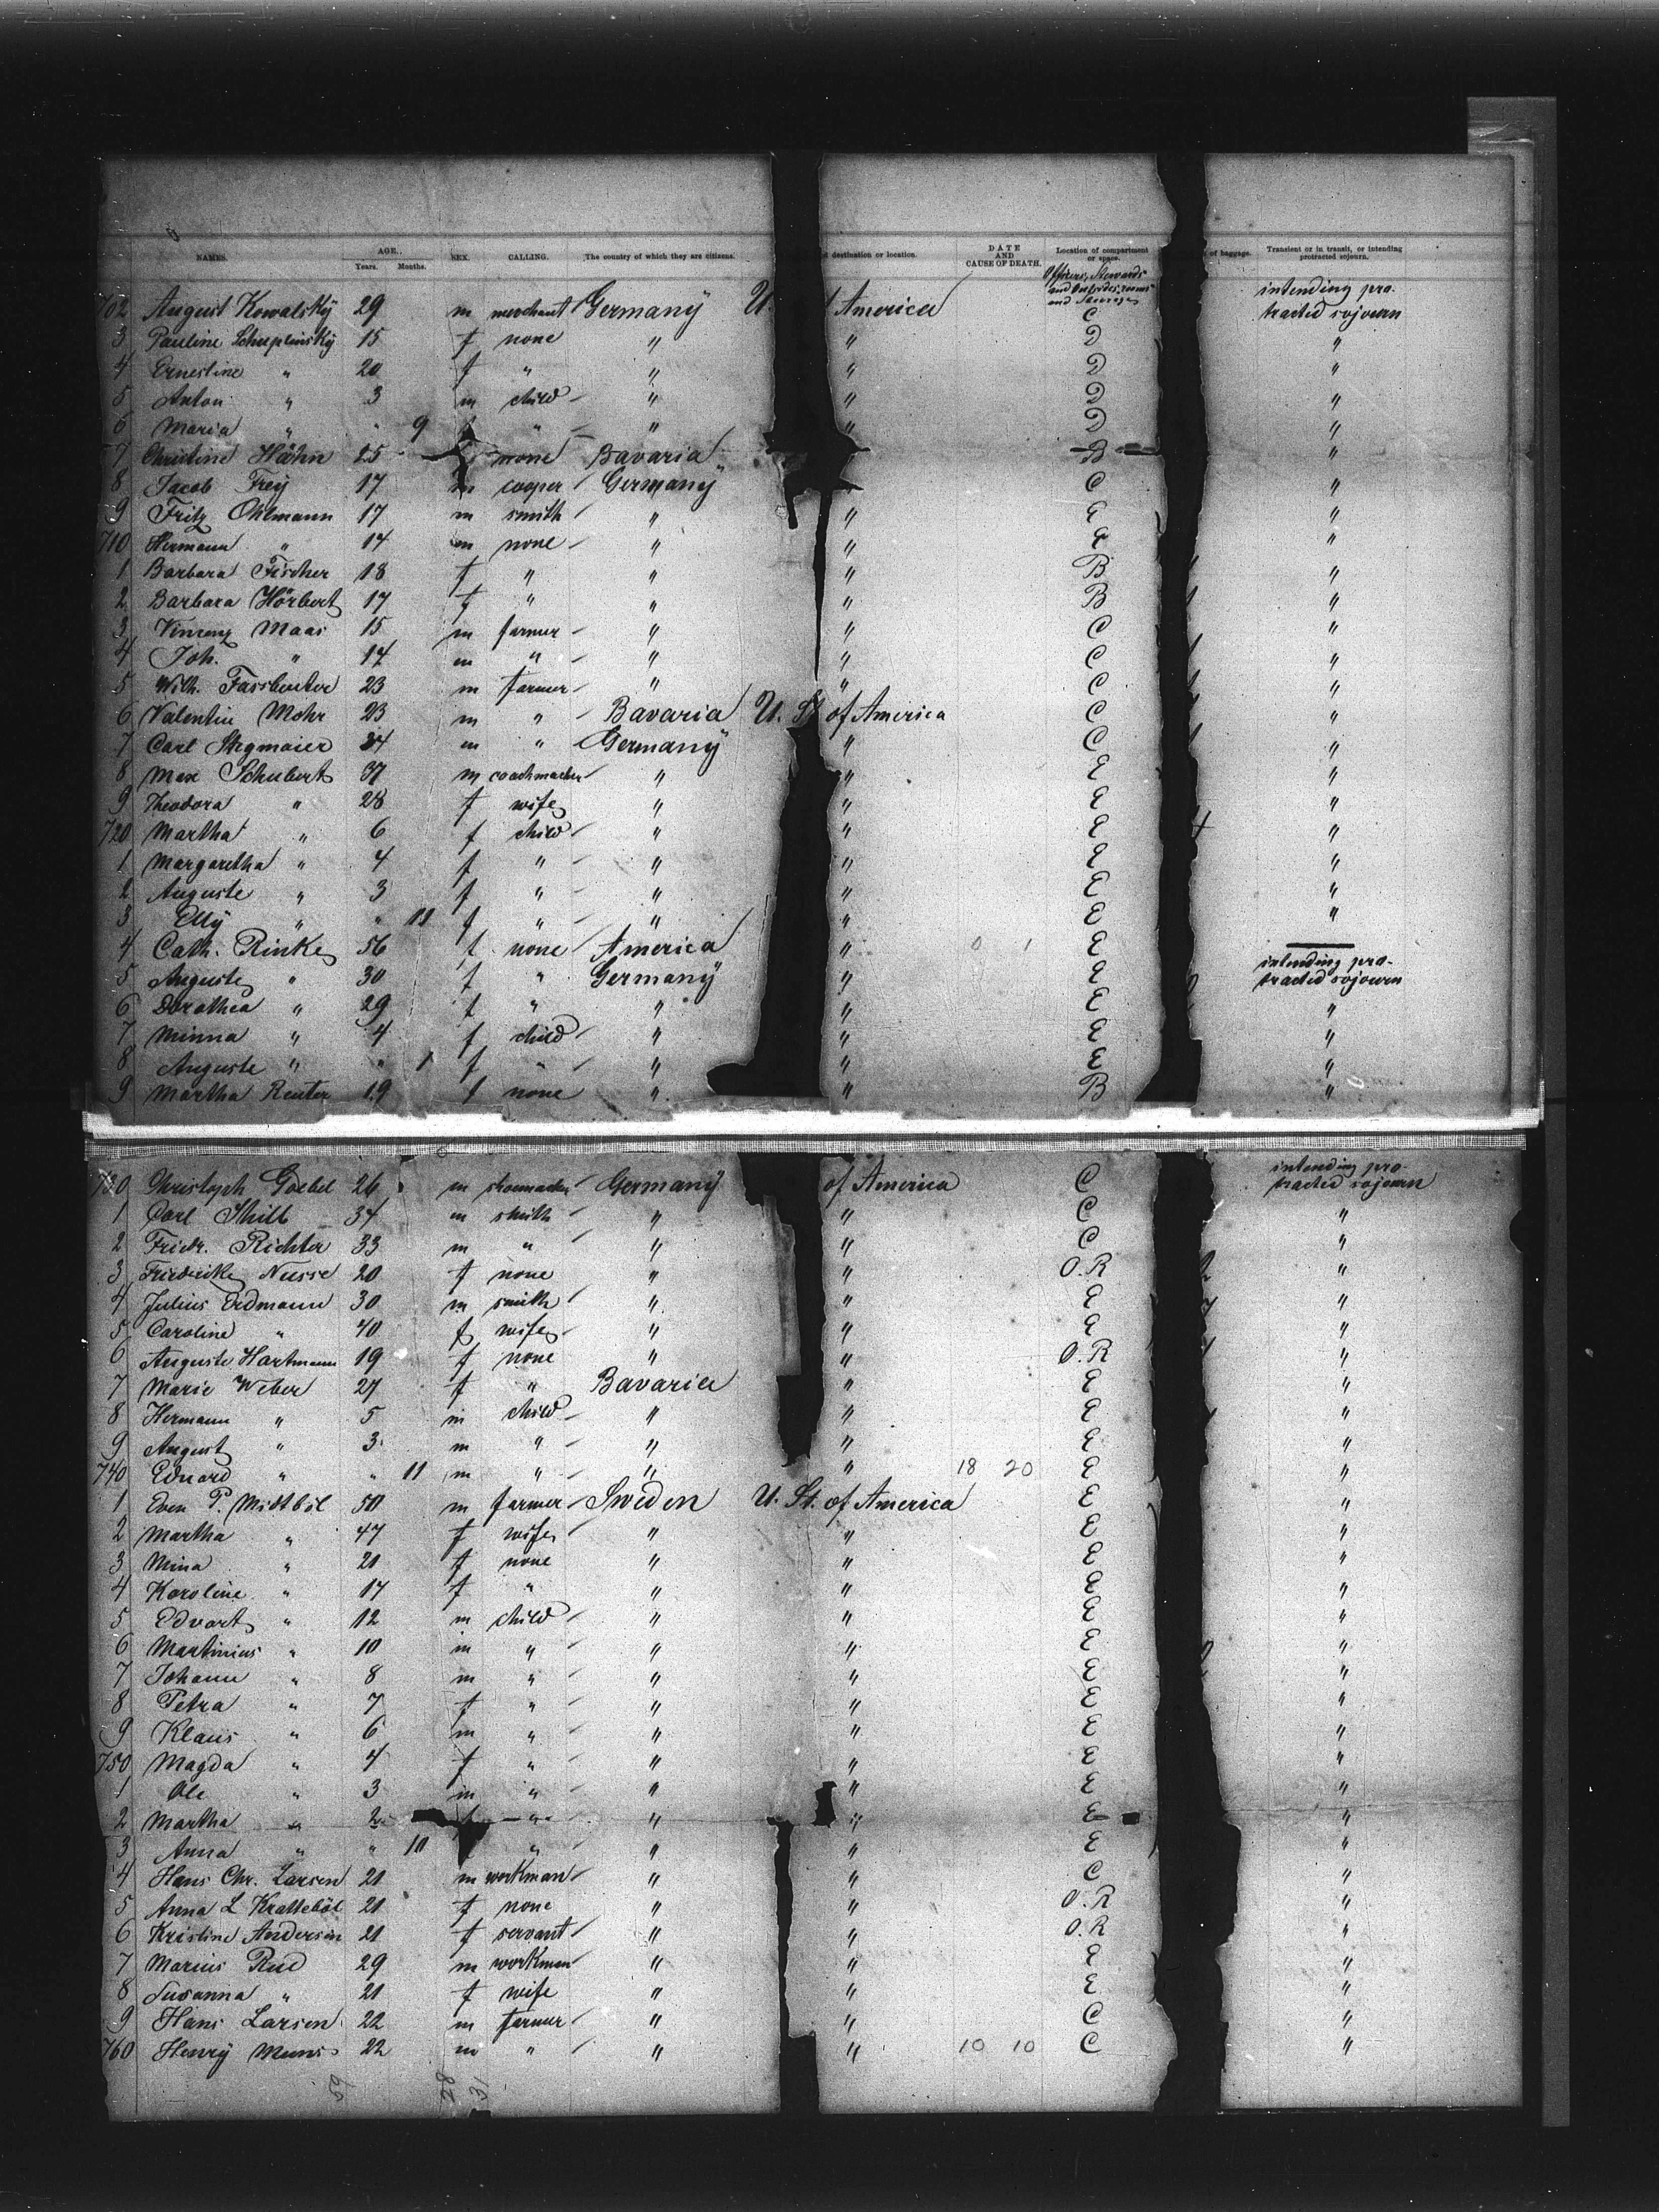 NAMES. AGE. Years. Months. SEX. CALLING. The country of which they are citizens. destination or location. DATE AND CAUSE OF DEATH. Location of compartment or space. of baggage. Transient or in transit, or intending protracted sojourn.
Officers, Stewards
and
and
702 August Kowalsky 29 m merchant Germany U. America C intending pro-
tracted sojourn
3 Pauline 15 f none " " D "
4 Ernestine " 20 f " " " D "
5 Anton " 3 m child " " D "
6 Maria " " 9 " " D "
7 Christine Hähn 25 none Bavaria B "
8 Jacob Frey 17 m cooper Germany " C "
9 Fritz Ohlmann 17 m smith " " E "
710 Hermann " 14 m none " " E "
1 Barbara Fischer 18 f " " " B "
2 Barbara Hörbert 17 f " " " B "
3 Vincenz Maas 15 m farmer " " C "
4 Joh. " 14 m " " " C "
5 Wilh. 23 m farmer " " C "
6 Valentin Mohr 23 m " Bavaria U. St. of America C "
7 Carl Stegmaier 34 m " Germany " C "
8 Max Schubert 37 m coachmacker " " E "
9 Theodora " 28 f wife " " E "
720 Martha " 6 f child " " E 4 "
1 Margaretha " 4 f " " " E "
2 Auguste " 3 f " " " E "
3 Elly " " 11 f " " " E "
4 Cath. Rinke 56 f none America " 0 1 E
5 Auguste " 30 f " Germany " E intending pro-
tracted sojourn
6 Dorothea " 29 f " " " E "
7 Minna " 4 f child " " E "
8 Auguste " " 1 f " " " E "
9 Martha Reuter 19 f none " " B "
730 Christoph Goebel 26 m shoemacker Germany of America C intending pro-
tracted sojourn
1 Carl 34 m smith " " C "
2 Friedr. Richter 33 m " " " C "
3 Friederike Nusse 20 f none " " O.R "
4 Julius Erdmann 30 m smith " " E "
5 Caroline " 40 f wife " " E "
6 Auguste Hartmann 19 f none " " O.R "
7 Marie Weber 27 f " Bavaria " E "
8 Hermann " 5 m child " " E "
9 August " 3 m " " " E "
740 Eduard " " 11 m " " " 18 20 E
1 Even P. Midtböl 50 m farmer Sweden U. St. of America E "
2 Martha " 47 f wife " " E "
3 Mina " 21 f none " " E "
4 Karoline " 17 f " " " E "
5 Edvart " 12 m child " " E "
6 Martinius " 10 m " " " E "
7 Johann " 8 m " " " E "
8 Petra " 7 f " " " E "
9 Klaus " 6 m " " " E "
750 Magda " 4 f " " " E "
1 Ole " 3 m " " " E "
2 Martha " 2 f " " " E "
3 Anna " " 10 " " " E "
4 Hans Chr. Larsen 21 m workman " " C "
5 Anna L Kratteböl 21 f none " " O.R "
6 Kristine Andersen 21 f servant " " O.R "
7 Marius Rud 29 m workman " " E "
8 Susanna " 21 f wife " " E "
9 Hans Larsen 22 m farmer " " C "
760 Henry Muns 22 m " " " 10 10 C "
59 28 31